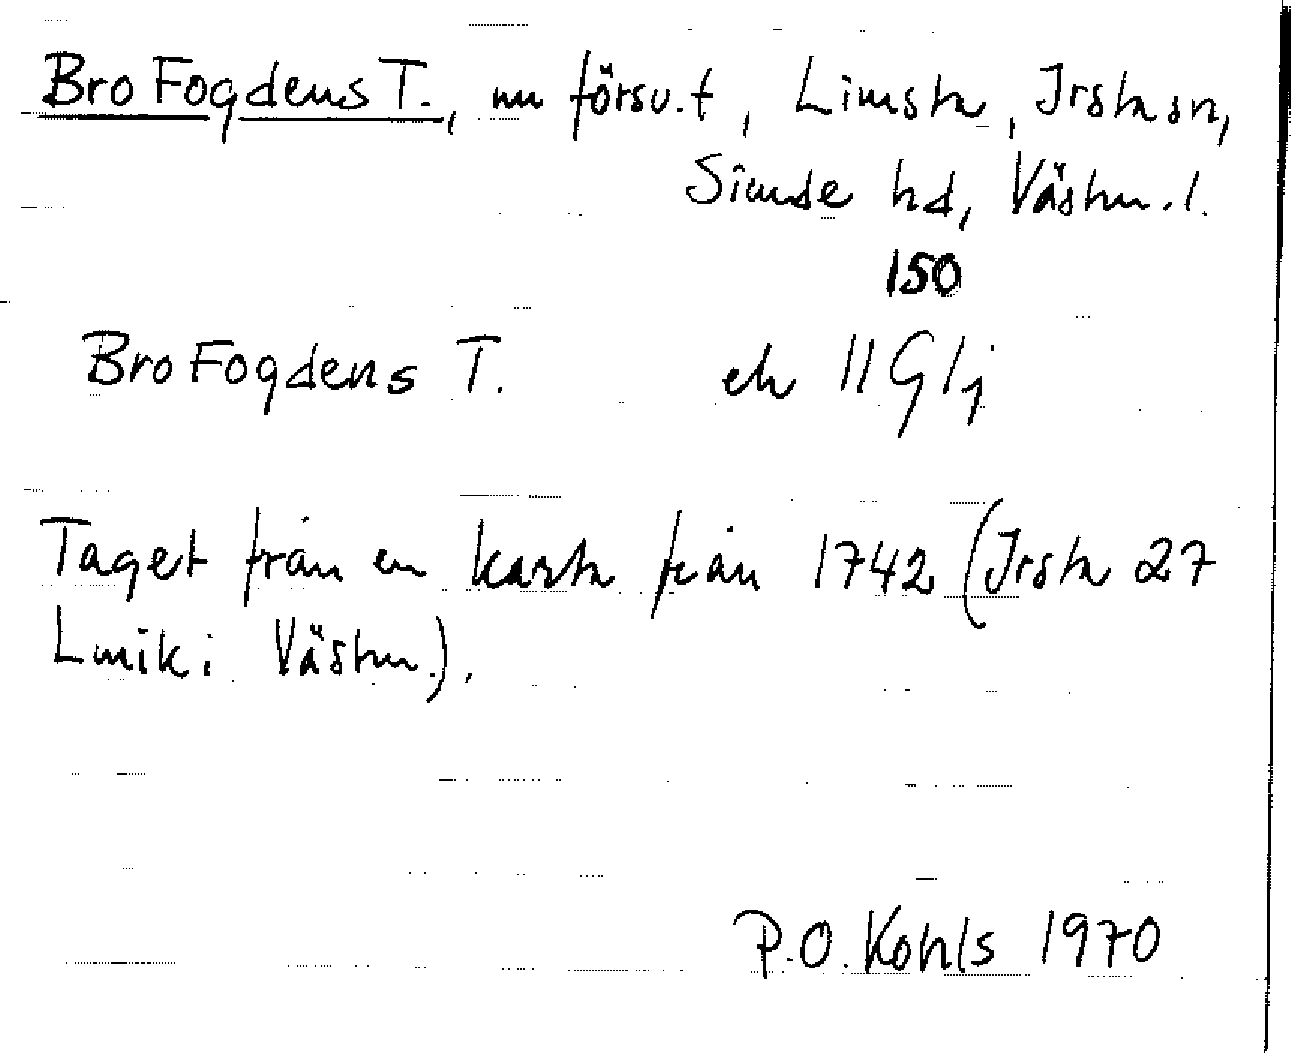 Bro Fogdens T., nu försv. t, Limsta, Irsta sn,
Siende hd, Västm. l.
150
Bro Fogdens T. ek 11G1j
Taget från en karta från 1742 (Irsta 27
Lmik: Västm.).
P.O. Kohls 1970